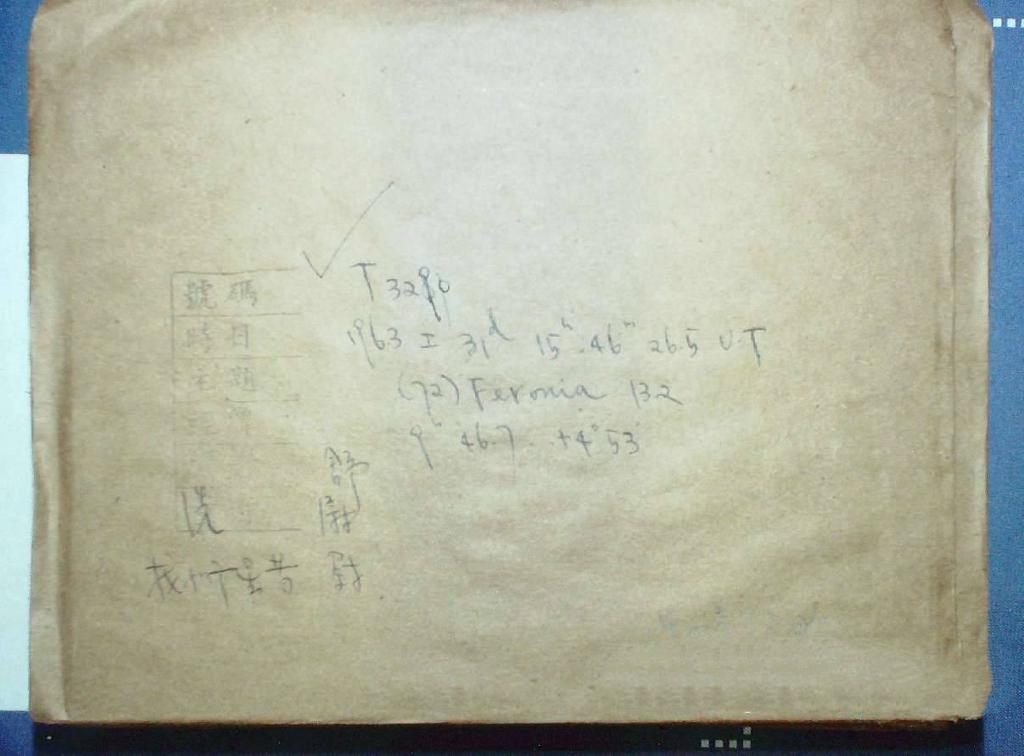 號碼
時日
主題
T 3290
1963 I 31d 15h 46m 26.5 U.T
(72) Feronia 132
9h 46.7 +4°53'
舒
洗 尉
尉